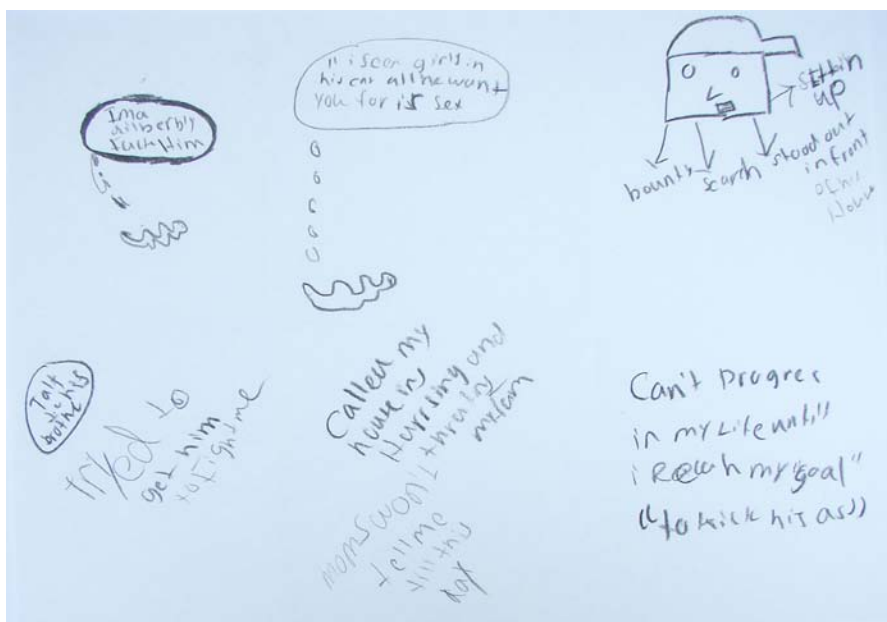 Ima
dilberbly
fuck Him
"i seen girls in
his car all he want
you for is sex
Sittin
up
bounty
search
stood out
in front
of his
House
Talk
to his
brother
tryed to
get him
to fight me
Called my
house in
Hurrsing and
thratin
my fam
moms won't
tell me
till this
day
Can't progres
in my Life until
i Reach my "goal"
"to kick his ass"